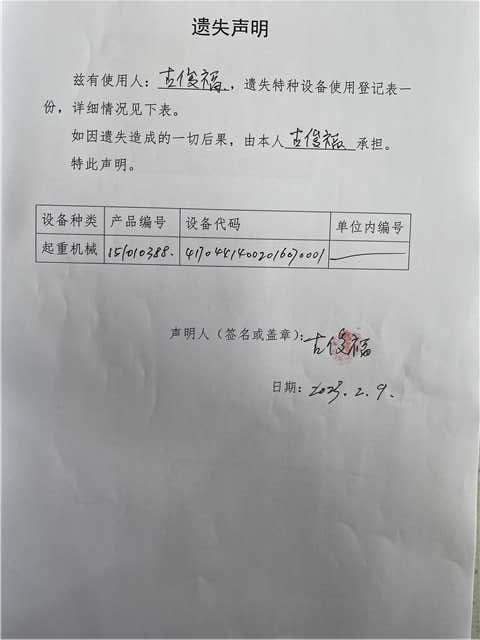 遗失声明
兹有使用人：古俊福，遗失特种设备使用登记表一
份，详细情况见下表。
如因遗失造成的一切后果，由本人古俊福承担。
特此声明。
设备种类 产品编号 设备代码 单位内编号
起重机械 151010388. 41704414002016070001
声明人（签名或盖章）：古俊福
日期：2023.2.9.